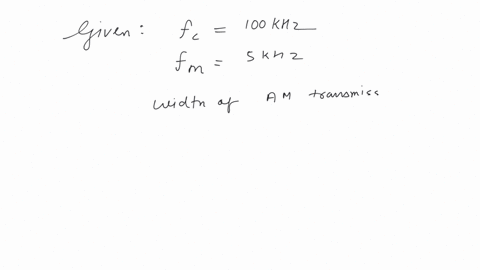 Given: fc = 100 KHz
fm = 5 kHz
width of AM transmiss